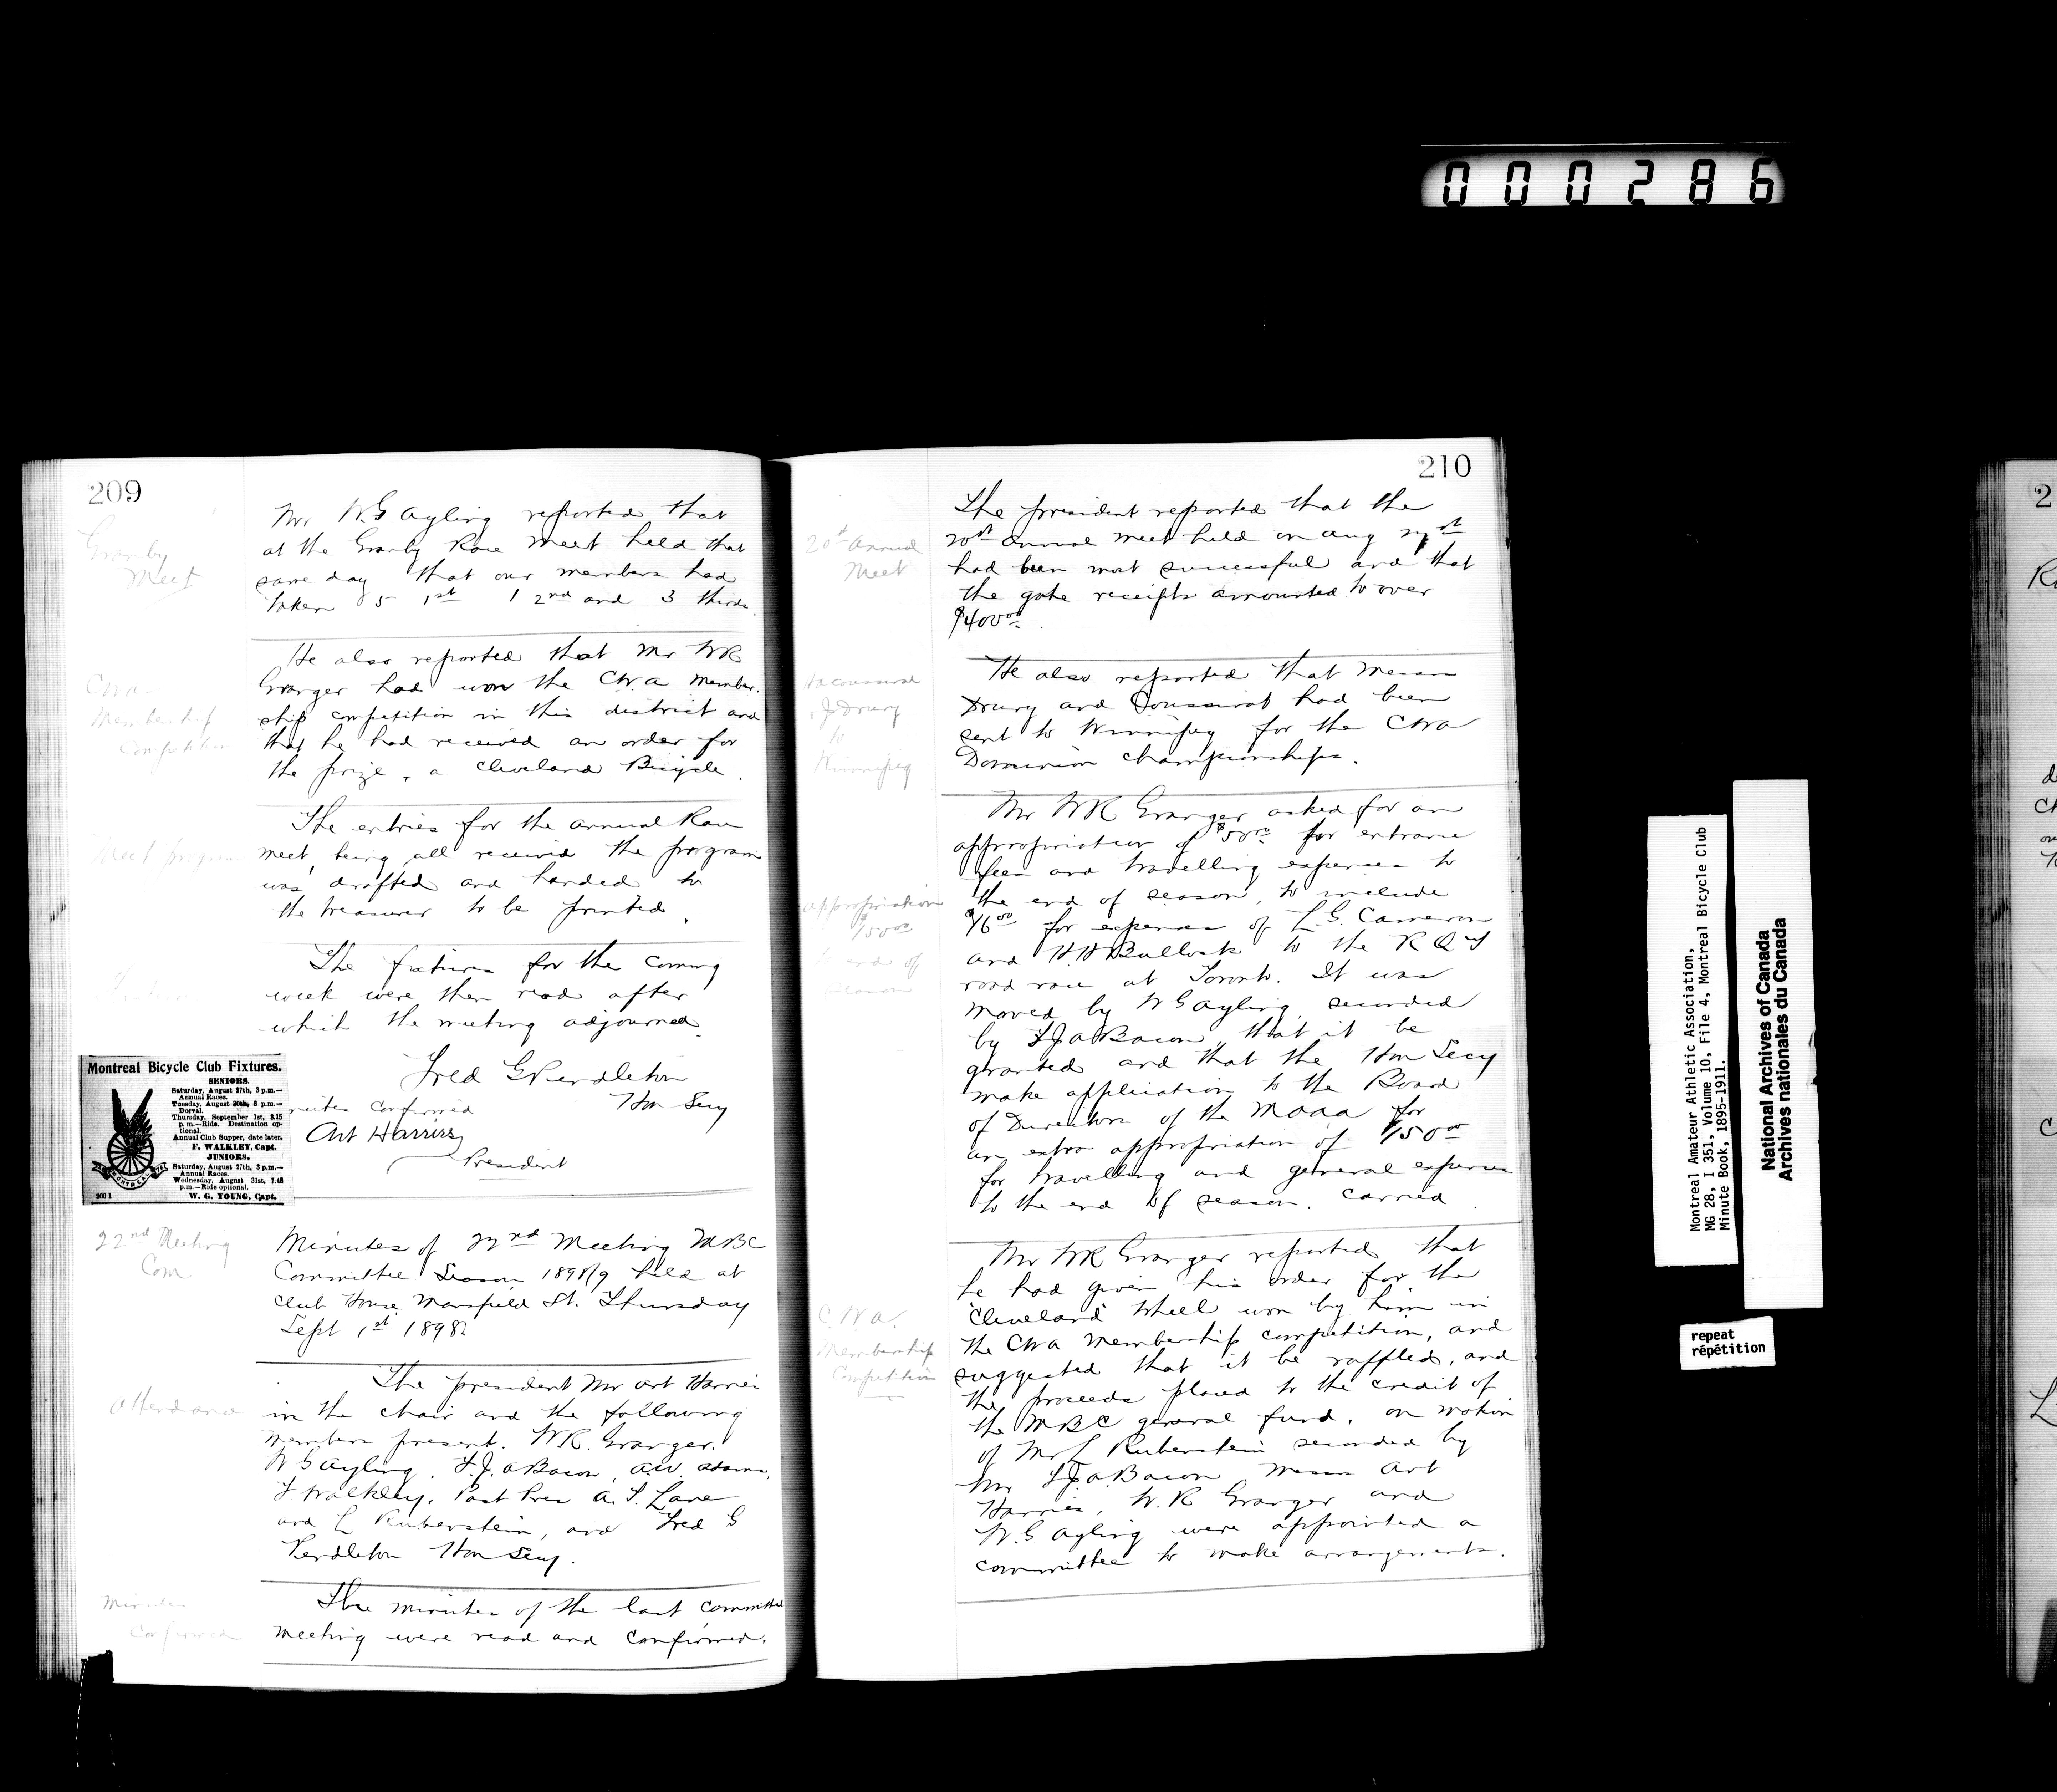 000286
209
Granby
Meet
Mr W.G Ayling reported that
at the Granby Race Meet held that
same day that our members had
taken 5 1st 1 2nd and 3 thirds.
CWA
Membership
Competition
He also reported that Mr WR
Granger had won the C.W.A Member-
ship competition in this district and
that he had received an order for
the prize, a Cleveland Bicycle.
Meet program
The entries for the annual Race
meet being all received the program
was drafted and handed to
the treasurer to be printed.
The fixtures for the coming
week were then read after
which the meeting adjourned.
Fred G Pendleton
Hon Secy
Montreal Bicycle Club Fixtures.
SENIORS.
Saturday, August 27th, 3 p.m.—
Annual Races.
Tuesday, August 30th, 8 p.m.—
Dorval.
Thursday, September 1st, 8.15
p. m.—Ride. Destination op-
tional.
Annual Club Supper, date later.
F. WALKLEY, Capt.
JUNIORS.
Saturday, August 27th, 3 p.m.—
Annual Races.
Wednesday, August 31st, 7.45
p.m.—Ride optional.
W. G. YOUNG, Capt.
200 1
confirmed
Art Harries
President
22nd Meeting
Com
Minutes of 22nd Meeting MBC
Committee Season 1898/9 held at
Club House Mansfield St. Thursday
Sept 1st 1898
Attendance
The president Mr Art Harries
in the chair and the following
members present. W.R. Granger.
W G Ayling, F.J. A Bacon, A.W. Adams,
F Walkley, Past Pres A. T. Lane
and L Rubenstein, and Fred G
Pendleton Hon Secy.
Minutes
Confirmed
The minutes of the last committee
meeting were read and confirmed.
210
20th Annual
Meet
The president reported that the
20th annual meet held on Aug 27th
had been most successful and that
the gate receipts amounted to over
$400.00
Drury
to
Winnipeg
He also reported that Messrs
Drury and Coussirat had been
sent to Winnipeg for the CWA
Dominion Championships.
appropriation
$150.00
to end of
season
Mr WR Granger asked for an
appropriation of $50.00 for entrance
fees and travelling expenses to
the end of season, to include
$16.00 for expenses of L.G. Cameron
and H H Bullock to the R Q T
road race at Toronto. It was
moved by W G Ayling, seconded
by F J A Bacon, that it be
granted and that the Hon Secy
make application to the Board
of Directors of the MAAA for
an extra appropriation of $150.00
for travelling and general expenses
to the end of season. Carried
C.W.A.
Membership
Competition
Mr WR Granger reported that
he had given his order for the
"Cleveland" Wheel won by him in
the CWA Membership competition, and
suggested that it be raffled, and
the proceeds placed to the credit of
the MBC general fund. On motion
of Mr L Rubenstein seconded by
Mr F J A Bacon Messrs Art
Harries, W.R Granger and
W.G Ayling were appointed a
committee to make arrangements.
Montreal Amateur Athletic Association,
MG 28, I 351, Volume 10, File 4, Montreal Bicycle Club
Minute Book, 1895-1911.
National Archives of Canada
Archives nationales du Canada
repeat
répétition
2